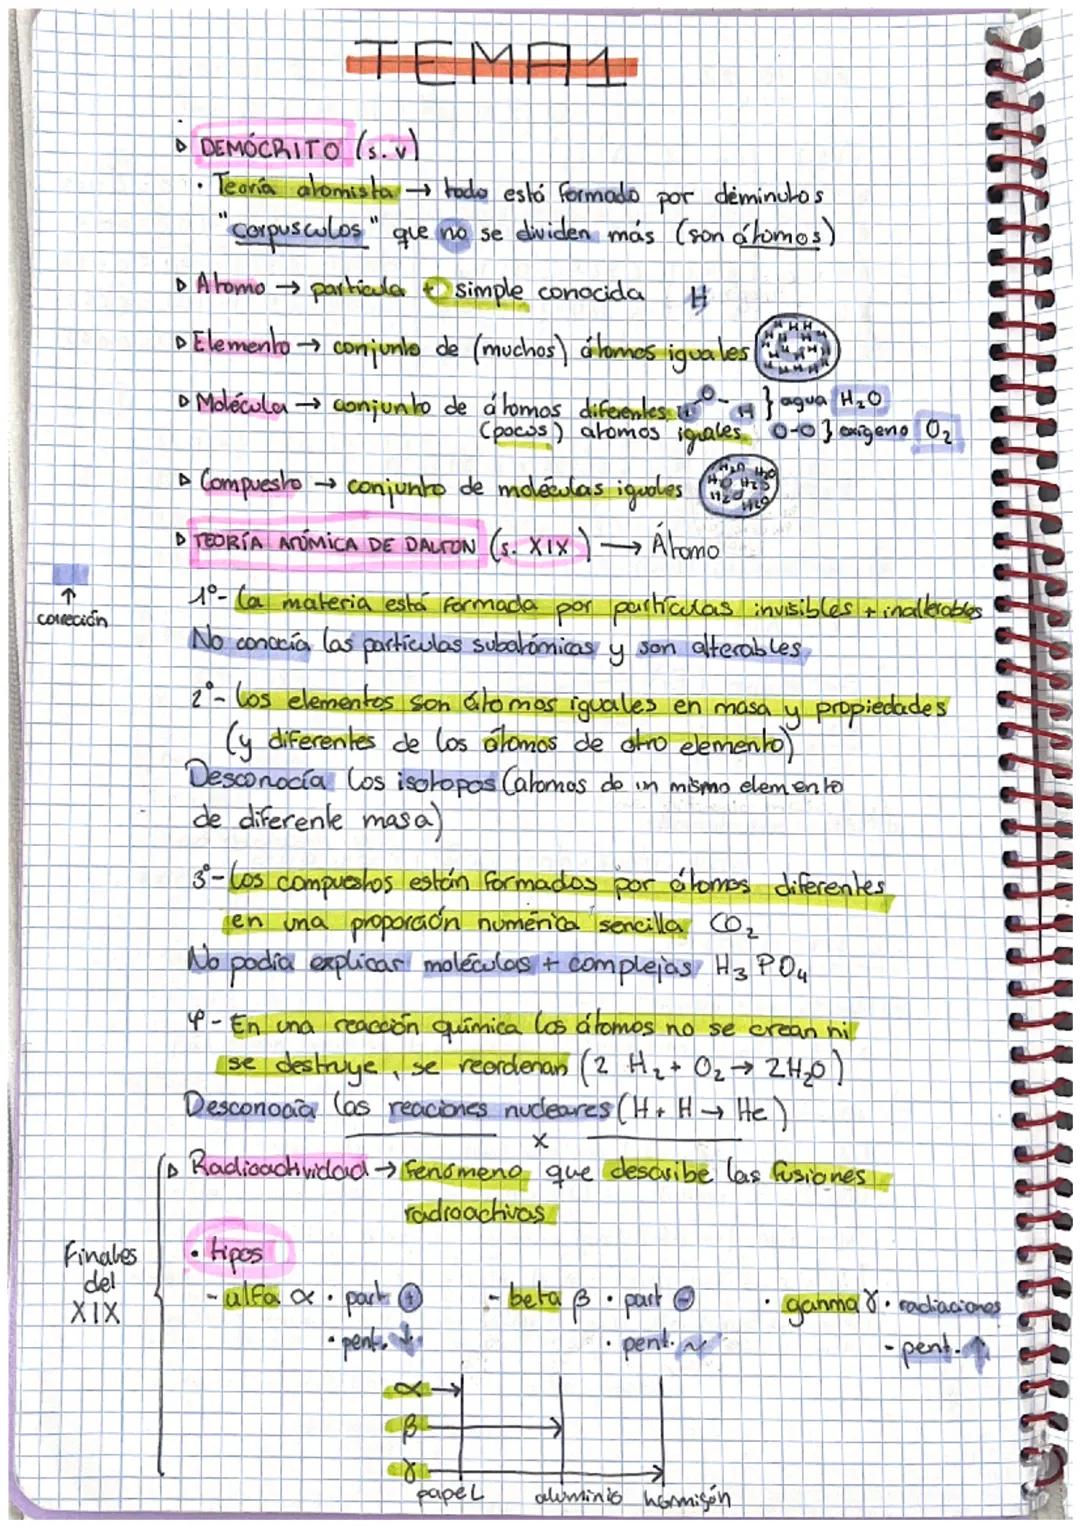 TEMA 1
▹ DEMÓCRITO (s. V)
· Teoría atomista → todo está formado por déminutos
"corpusculos" que no se dividen más (son átomos)
▹ Atomo → partícula + simple conocida H
▹ Elemento → conjunto de (muchos) átomos iguales
▹ Molécula → conjunto de átomos diferentes H O H } agua H₂O
(pocos) atomos iguales O-O } oxígeno O₂
▹ Compuesto → conjunto de moléculas iguales
▹ TEORÍA ATÓMICA DE DALTON (s. XIX) → Átomo
↑
corrección
1º- La materia está formada por partículas invisibles + inalterables
No conocía las partículas subatómicas y son alterables
2º- Los elementos son átomos iguales en masa y propiedades
(y diferentes de los átomos de otro elemento)
Desconocía los isotopos (atomos de un mismo elemento
de diferente masa)
3º- Los compuestos están formados por átomos diferentes
en una proporción numérica sencilla CO₂
No podía explicar moléculas + complejas H₃PO₄
4º- En una reacción química los átomos no se crean ni
se destruye, se reordenan (2 H₂ + O₂ → 2H₂O)
Desconocía las reaciones nucleares (H + H → He)
x
▹ Radioactividad → fenómeno que describe las fusiones
radioactivas
Finales
del
XIX
· tipos
- alfa α · part ⊕ - beta β · part ⊖ · ganma γ · radiaciones
· pent. ↓ · pent. ~ - pent. ↑
α →
β →
γ →
papel aluminio hormigón